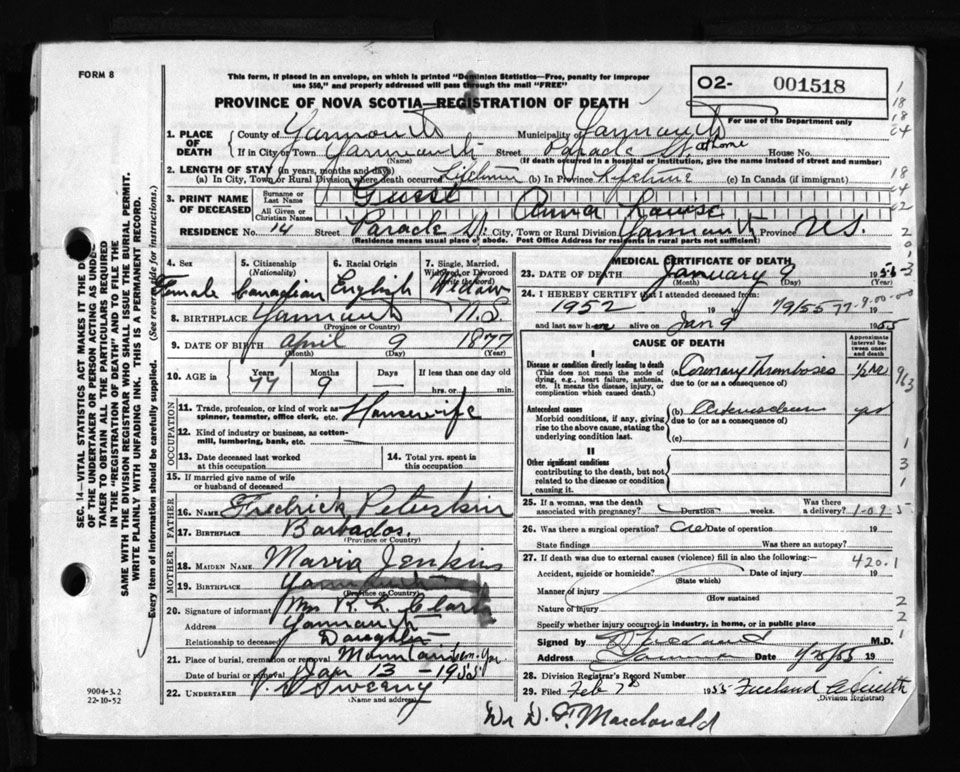 FORM 8
This form, if placed in an envelope, on which is printed "Dominion Statistics—Free, penalty for improper
use $50," and properly addressed will pass through the mail "FREE"
O2- 001518
For use of the Department only
PROVINCE OF NOVA SCOTIA—REGISTRATION OF DEATH
1. PLACE OF DEATH County of Yarmouth Municipality of Yarmouth
If in City or Town Yarmouth Street Parade St. at home House No.
(Name) (If death occurred in a hospital or institution, give the name instead of street and number)
2. LENGTH OF STAY (in years, months and days)
(a) In City, Town or Rural Division where death occurred Lifetime (b) In Province Lifetime (c) In Canada (if immigrant)
3. PRINT NAME OF DECEASED
Surname or Last Name
All Given or Christian Names Anna Louise
RESIDENCE No. 14 Street Parade St. City, Town or Rural Division Yarmouth Province N.S.
(Residence means usual place of abode. Post Office Address for residents in rural parts not sufficient)
4. Sex 5. Citizenship (Nationality) 6. Racial Origin 7. Single, Married, Widowed or Divorced (Write the word)
Female Canadian English Widow
8. BIRTHPLACE Yarmouth N.S.
(Province or Country)
9. DATE OF BIRTH April 9 1877
(Month) (Day) (Year)
10. AGE in Years Months Days If less than one day
77 9 — hrs. or min.
OCCUPATION
11. Trade, profession, or kind of work as spinner, teamster, office clerk, etc. Housewife
12. Kind of industry or business, as cotton-mill, lumbering, bank, etc.
13. Date deceased last worked at this occupation
14. Total yrs. spent in this occupation
15. If married give name of wife or husband of deceased
FATHER
16. NAME Fredrick
17. BIRTHPLACE Barbados
(Province or Country)
MOTHER
18. MAIDEN NAME Maria Jenkins
19. BIRTHPLACE Yarmouth
(Province or Country)
20. Signature of informant Mrs R. L. Clark
Address Yarmouth
Relationship to deceased Daughter
21. Place of burial, cremation or removal Mountain Cem. Yar.
Date of burial or removal Jan 13 - 1955
22. UNDERTAKER V. S. Sweeny
(Name and address)
MEDICAL CERTIFICATE OF DEATH
23. DATE OF DEATH January 9 195
(Month) (Day)
24. I HEREBY CERTIFY that I attended deceased from
1952 19 1/9/55 77-9-00-00
and last saw h alive on Jan 9 1955
CAUSE OF DEATH
Approximate interval between onset and death
I
Disease or condition directly leading to death
(This does not mean the mode of dying, e.g., heart failure, asthenia, etc. It means the disease, injury, or complication which caused death.)
Coronary Thrombosis
due to (or as a consequence of)
Antecedent causes
Morbid conditions, if any, giving rise to the above cause, stating the underlying condition last.
(b)
due to (or as a consequence of)
(c)
II
Other significant conditions
contributing to the death, but not related to the disease or condition causing it.
25. If a woman, was the death associated with pregnancy? Duration weeks. Was there a delivery?
26. Was there a surgical operation? Date of operation 19
State findings Was there an autopsy?
27. If death was due to external causes (violence) fill in also the following:— 420.1
Accident, suicide or homicide? Date of injury 19
(State which)
Manner of injury
(How sustained
Nature of injury
Specify whether injury occurred in industry, in home, or in public place
Signed by M.D.
Address Date 1/25/55 19
28. Division Registrar's Record Number
29. Filed Feb 7th 1955
(Division Registrar)
Dr D. F. Macdonald
SEC. 14—VITAL STATISTICS ACT MAKES IT THE D
OF THE UNDERTAKER OR PERSON ACTING AS UNDE
TAKER TO OBTAIN ALL THE PARTICULARS REQUIRED
IN THE "REGISTRATION OF DEATH" AND TO FILE THE
SAME WITH THE DIVISION REGISTRAR WHO SHALL ISSUE THE BURIAL PERMIT.
WRITE PLAINLY WITH UNFADING INK. THIS IS A PERMANENT RECORD.
Every item of information should be carefully supplied. (See reverse side for instructions.)
9004-3.2
22-10-52